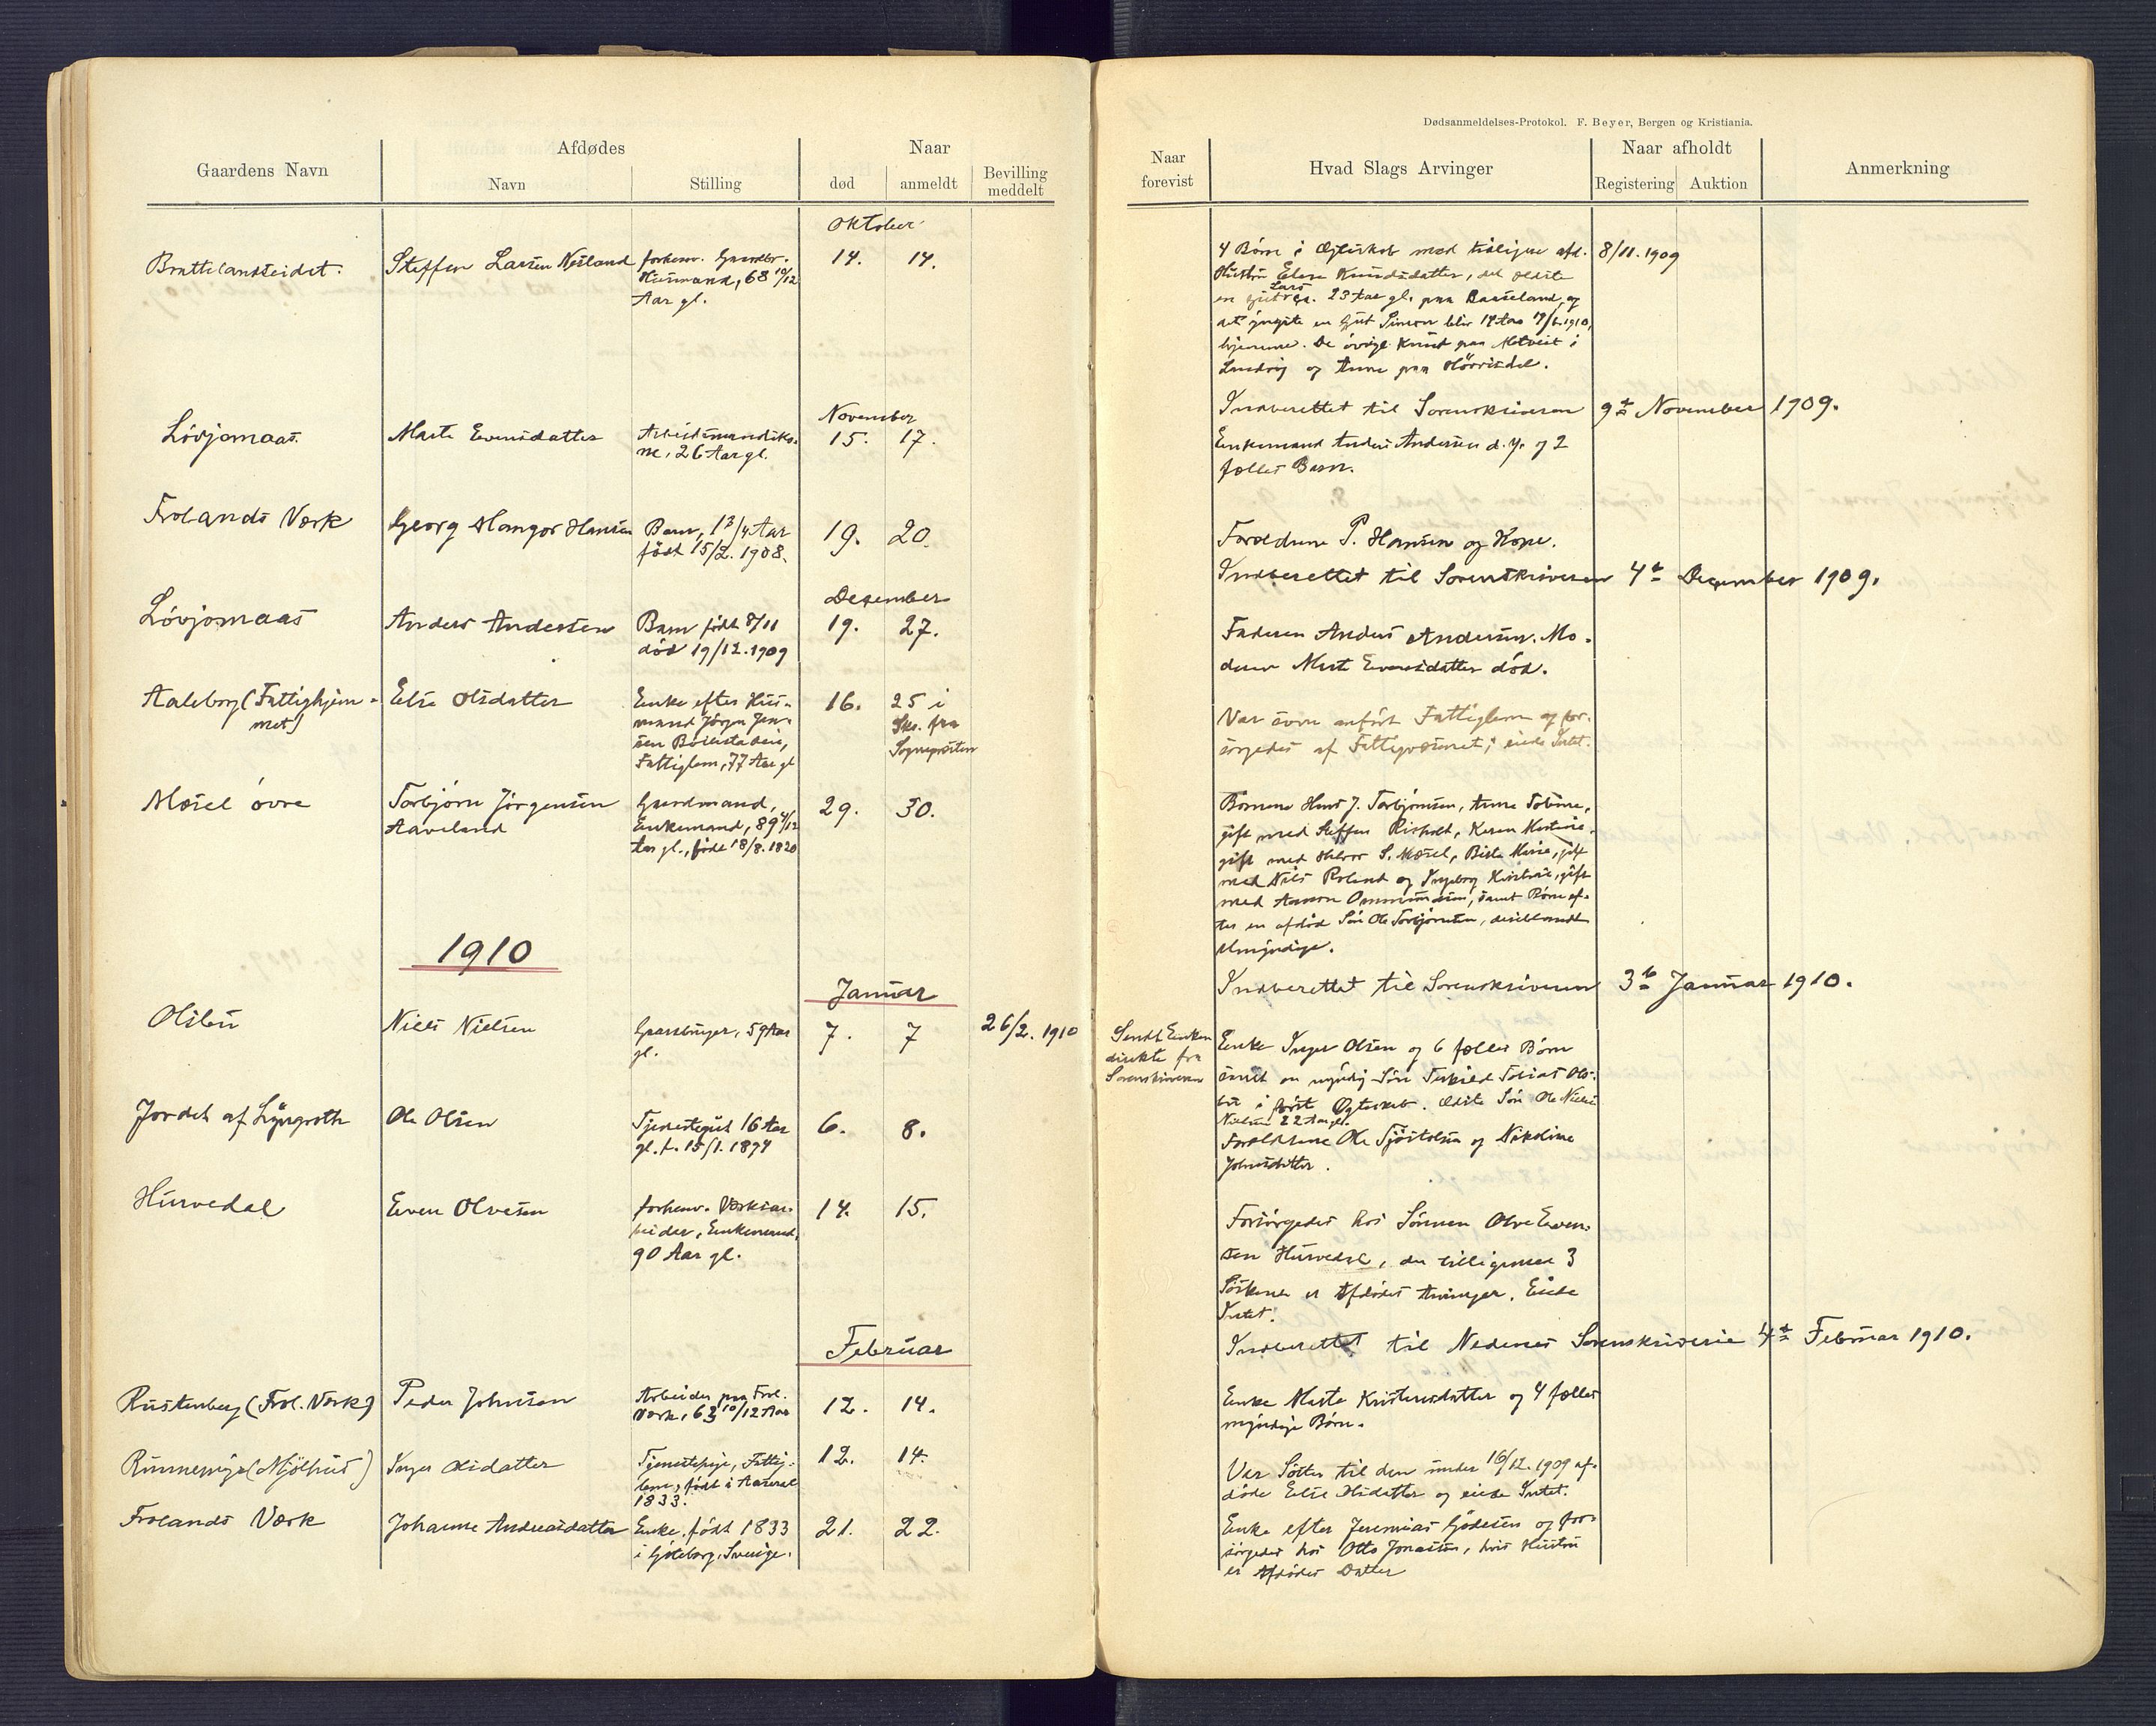 Dødsanmeldelses-Protokol. F. Beyer, Bergen og Kristiania.
Gaardens Navn
Afdødes
Navn
Stilling
Naar
død
anmeldt
Bevilling
meddelt
Naar
forevist
Hvad Slags Arvinger
Naar afholdt
Registering
Auktion
Anmerkning
Oktober
Brattelandseidet.
Steffen Larsen Nesland
forhenv. Gaardbr.
Husmand, 68 10/12
Aar gl.
14.
14.
4 Børn i Ægteskab med tidligere afd.
Hustru Elen Knudsdatter, det ældste
en gut Lars ca. 23 Aar gl. paa Baaseland, og
det yngste en Gut Simon blir 14 Aar 1910,
hjemme. De øvrige Knud paa Motveit i
Landvig og Anne paa Hørrisdal.
8/11.1909
Indberettet til Sorenskriveren 9de November 1909.
November
Løvjomaas.
Marte Evensdatter
Arbeidsmandsko-
ne, 26 Aar gl.
15.
17.
Enkemand Anders Andersen d.y. og 2
fælles Barn.
Frolands Værk
Georg Mangor Hansen
Barn, 1 3/4 Aar
født 15/2.1908.
19.
20.
Forældrene P. Hansen og Kone.
Indberettet til Sorenskriveren 4de Dezember 1909.
Dezember
Løvjomaas
Anders Andersen
Barn født 8/11
død 19/12.1909
19.
27.
Faderen Anders Andersen. Mo-
deren Marte Evensdatter død.
Aaleborg (Fattighjem-
met)
Else Olsdatter
Enke efter Hus-
mand Jørgen Jen-
sen Bøilestadeie,
Fattiglem, 77 Aar gl
16.
25 i
Skr. fra
Sognepræsten
Var som anført Fattiglem og for-
sørgedes af Fattigvæsenet; eiede Intet.
Mæsel øvre
Torbjørn Jørgensen
Aaveland
Gaardmand,
Enkemand, 89 4/12
Aar gl., født 18/8.1820
29.
30.
Børnene Hans J. Torbjørnsen, Anne Tobine,
gift med Steffen Risholt, Karen Kristine,
gift med Halvor S. Mæsel, Berte Marie, gift
med Nils Roland og Ingeborg Kristine, gift
med Aanon Ommundsen, samt Børn ef-
ter en afdød Søn Ole Torbjørnsen, deriblandt
Umyndige.
Indberettet til Sorenskriveren 3de Januar 1910.
1910
Januar
Olsbu
Niels Nielsen
Gaardbruger, 59 Aar
gl.
7.
7
26/2.1910
Sendt Enken
direkte fra
Sorenskriveren
Enke Inger Olsen og 6 fælles Børn
samt en myndig Søn Terkild Tobias Ols-
bu i første Ægteskab. Ældste Søn Ole Nicolai
Nielsen 22 Aar gl.
Jordet af Lyngroth
Ole Olsen
Tjenestegut 16 Aar
gl. f. 15/1.1894
6.
8.
Forældrene Ole Tjøstolsen og Nikoline
Johnsdatter.
Hurvedal
Even Olvesen
forhenv. Værksar-
beider, Enkemand,
90 Aar gl.
14.
15.
Forsørgedes hos Sønnen Olve Even-
sen Hurvedal, der tilligemed 3
Søskende er Afdødes Arvinger. Eiede
Intet.
Indberettet til Nedenes Sorenskriverie 4de Februar 1910.
Februar
Rustenberg (Frol. Værk)
Peder Johnsen
Arbeider paa Frol.
Værk, 63 10/12 Aar
12.
14.
Enke Marte Kristensdatter og 4 fælles
myndige Børn.
Rinnemyr (Mjølhus)
Inger Olsdatter
Tjenestepige, Fattig-
lem, født i Aaseral
1833.
12.
14.
Var Søster til den under 16/12.1909 af-
døde Else Olsdatter og eiede Intet.
Frolands Værk
Johanne Andreasdatter
Enke, født 1833
i Gøteborg, Sverige.
21.
22.
Enke efter Jeremias Gødesen og for-
sørgedes hos Otto Jonassen, hvis Hustru
er Afdødes Datter